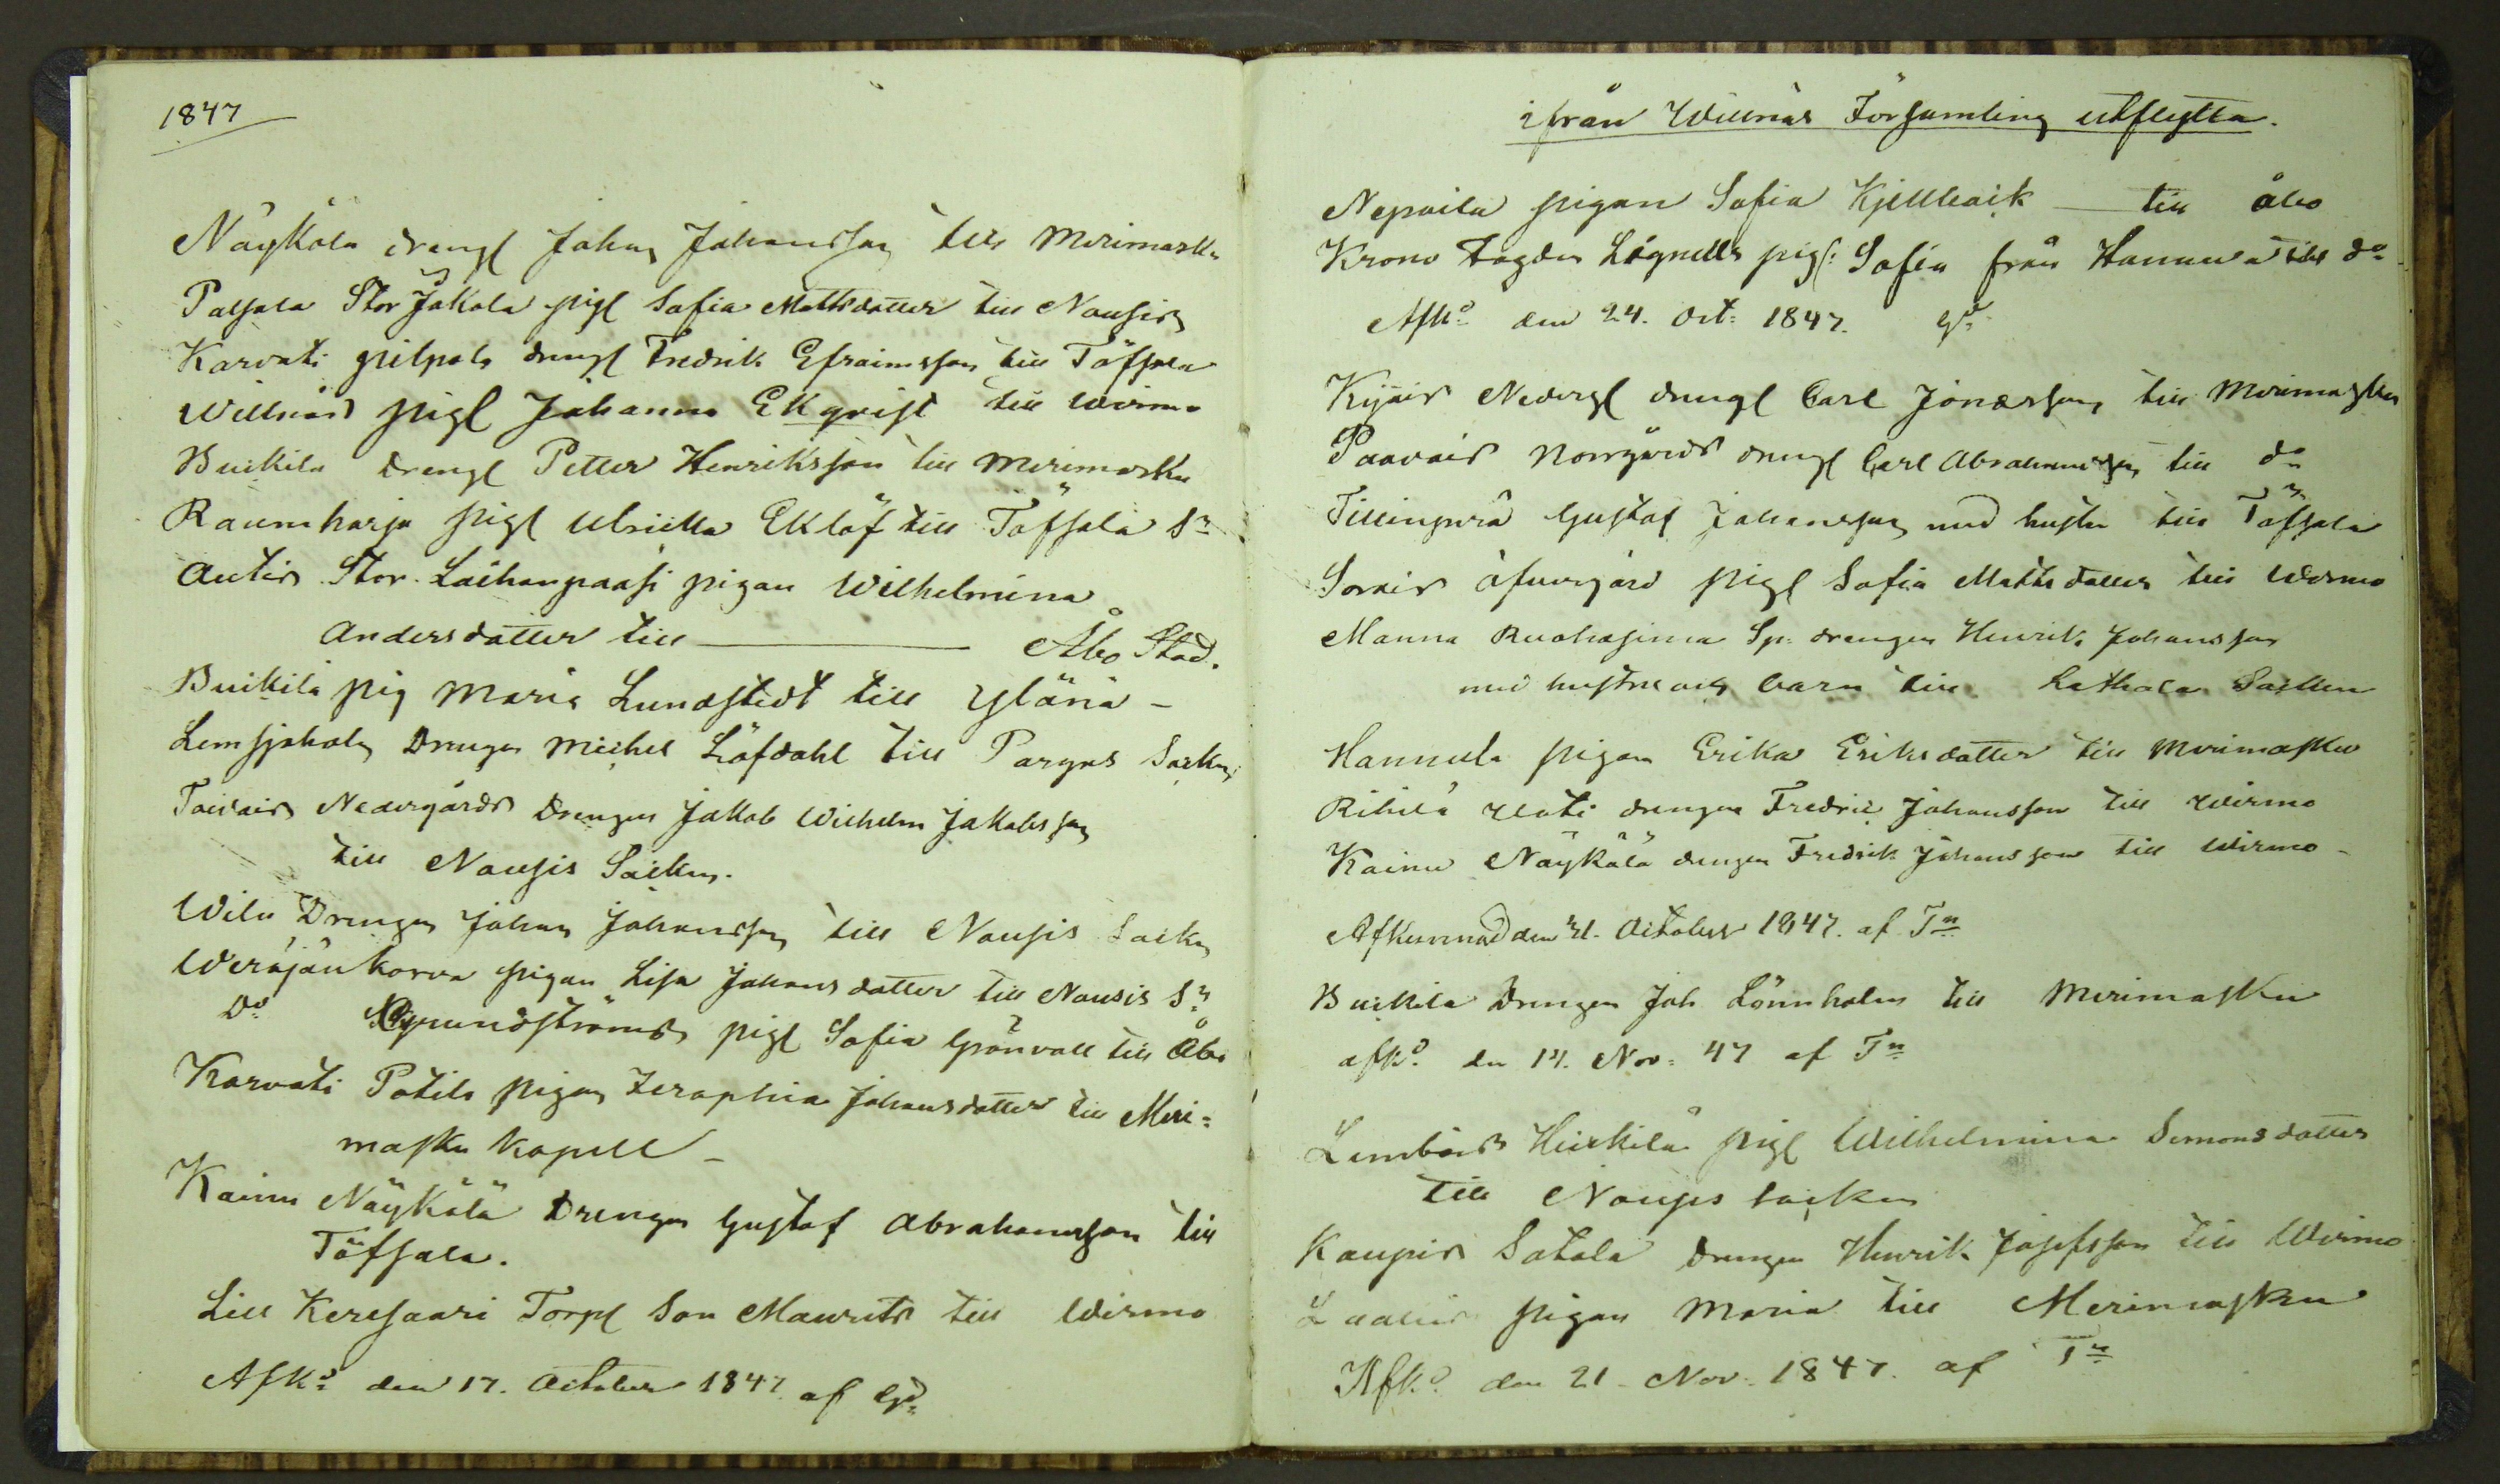 1847
Näykälä drengl Johan Johansson till Merimasku
Palsala Stor Jakola pigl Sofia Mattsdotter till Nousis
Karvati pilpola drengl Fredrik Efraimsson till Töfsala
Willnäs pigl Johanna Ekqvist till Wirmo
Buikila drengl Petter Henriksson till Merimasku
Raumharja pigl Ulricka Eklöf till Töfsala Sn
Autis Stor Laihanpaasi pigan Wilhelmina
Andersdotter till Åbo Stad.
Buikila pig Maria Lundstedt till Yläne -
Lemsjoholm Drengen Michel Löfdahl till Pargas Sockn
Taivais Nedergårds Drengen Jakob Wilhelm Jakobsson
till Nousis Socken.
Wilu Drengen Johan Johansson till Nousis Sockn
Weräjänkorva pigan Lisa Johansdotter till Nousis Sn
Do Grundströms pigl Sofia Grönvall till Åbo
Karvati Potila pigan Seraphia Johansdotter till Meri=
masku Kapell -
Kainu Näykälä Drengen Gustaf Abrahamsson till
Töfsala.
Lill Keresaari Torpl Son Maurits till Wirmo
Afkd den 17. October 1847 af Gd
ifrån Willnäs Församling utflytta.
Nepoila pigan Sofia till Åbo
Krono Fogden Lignells pigl: Sofia från Hannula till do
Afkd den 24. Oct: 1847. Gd
Kijais Nedergl drengl Carl Jonasson till Merimasku
Paavais Norrgårds drengl Carl Abrahamsson till do
Gustaf Johansson med hustru till Töfsala
Sorais öfvergård pigl Sofia Mattsdotter till Wirmo
Manna Ruohosima Sp. drengen Henrik Johansson
med hustru och barn till Lethala Socken
Hannula pigan Erika Eriksdotter till Merimasku
Rihilä Uoti drengen Fredric Johansson till Wirmo
Kainu Näykälä drengen Fredrik Johansson till Wirmo -
Afkunnad den 31. October 1847. af Tn
Buikila Drengen Joh Lönnholm till Merimasku
afkd. den 14. Nov: 47 af Tn
Lembois Heikkilä pigl Wilhelmina Simonsdotter
till Nousis socken
Kaupis Satola Drengen Henrik Josefsson till Wirmo
pigan Maria till Merimasku
Afkd. den 21. Nov. 1847. af Tn